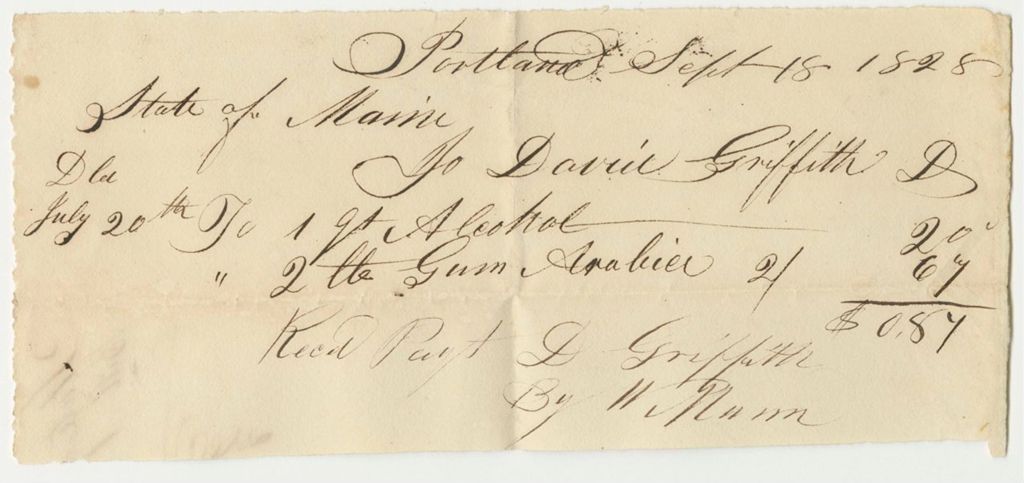 Portland Sept 18 1828
State of Maine
To David Griffith D
Dld
July 20th To 1 qt Alcohol 20
" 2 lb Gum Arabic 2/ 67
$ 0.87
Recd Payt D Griffith
By W Mann